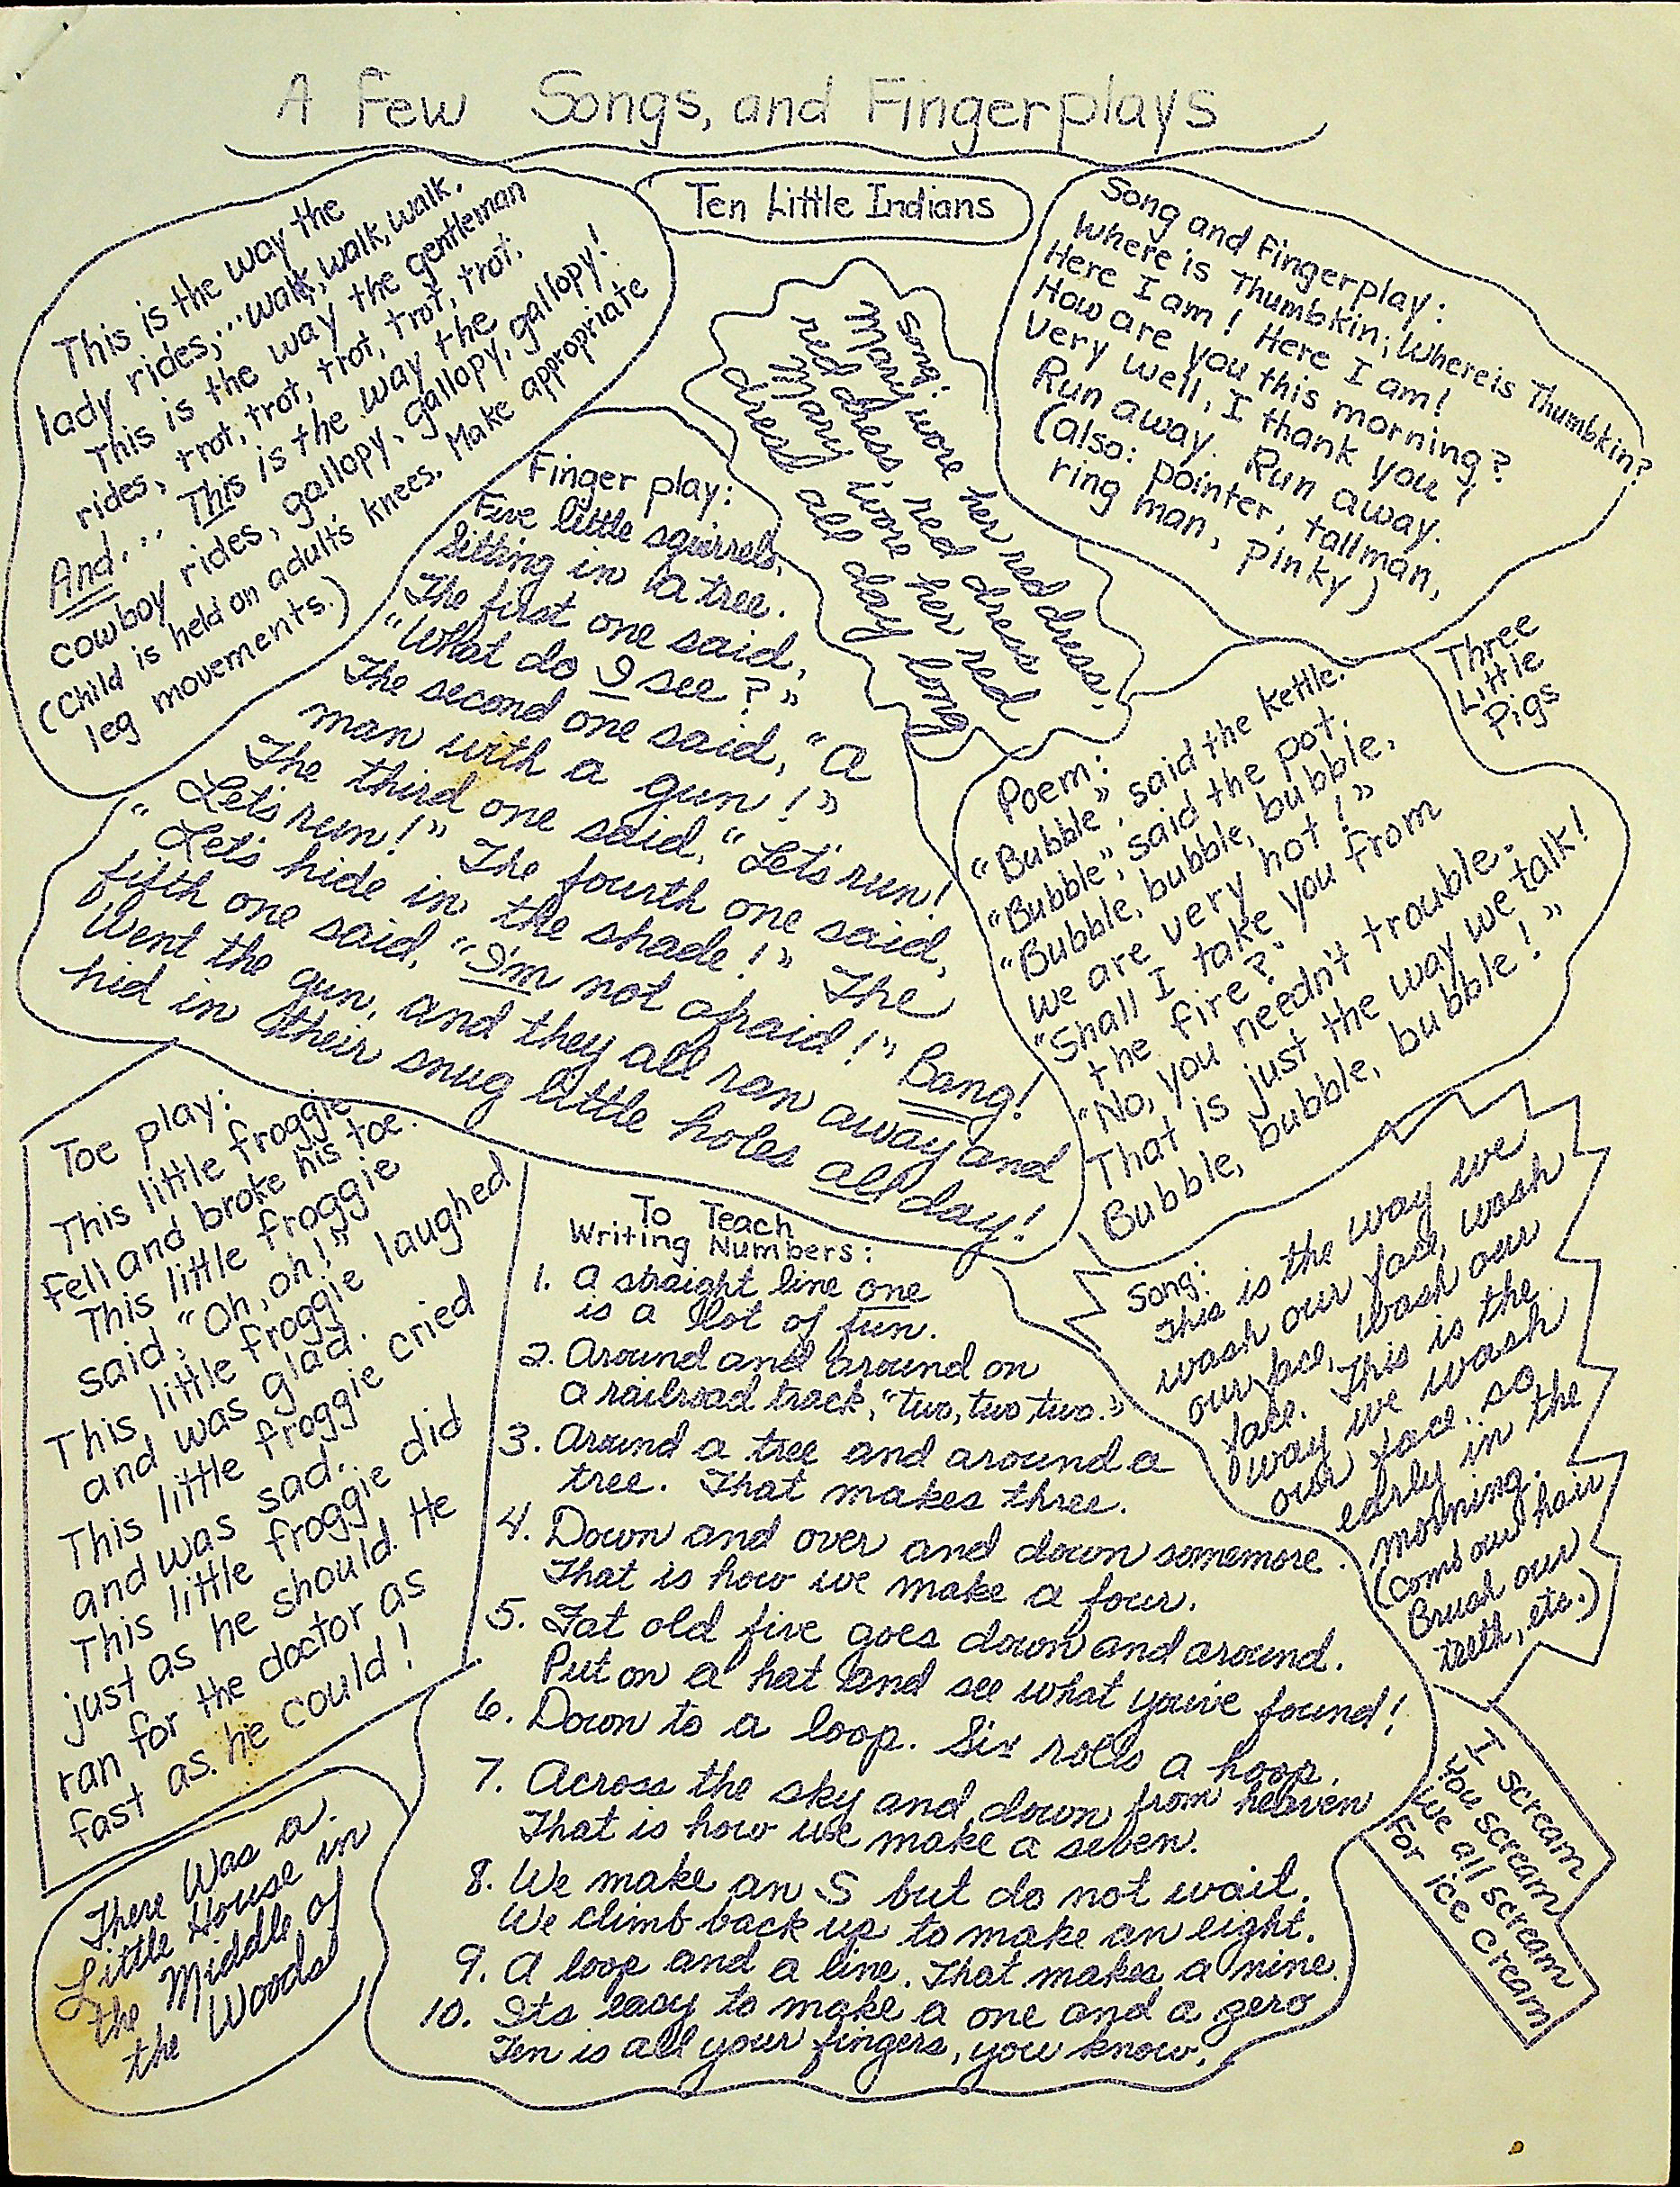 A Few Songs, and Fingerplays
This is the way the
lady rides,... walk, walk, walk, walk.
This is the way the gentleman
rides, trot, trot, trot, trot, trot, trot.
And... This is the way the
cowboy rides, gallopy, gallopy, gallopy, gallopy!
(Child is held on adult's knees. Make appropriate
leg movements.)
Ten Little Indians
Song and Fingerplay:
Where is Thumbkin; Where is Thumbkin?
Here I am! Here I am!
How are you this morning?
Very well, I thank you!
Run away. Run away.
(also: pointer, tallman,
ring man, pinky)
Song:
Mary wore her red dress,
red dress, red dress
Mary wore her red
dress all day long
Finger play:
Five little squirrels,
Sitting in a tree.
The first one said,
"What do I see?"
The second one said, "A
man with a gun!"
The third one said, "Let's run!
Let's run!" The fourth one said,
"Let's hide in the shade!" The
fifth one said, "I'm not afraid!" Bang!
Went the gun, and they all ran away and
hid in their snug little holes all day!
Three
Little
Pigs
Poem:
"Bubble", said the kettle.
"Bubble," said the pot.
"Bubble, bubble, bubble, bubble,
we are very hot!"
"Shall I take you from
the fire?"
"No, you needn't trouble.
That is just the way we talk!
Bubble, bubble, bubble, bubble!"
Toe play:
This little froggie
Fell and broke his toe.
This little froggie
said, "Oh, oh, oh!"
This little froggie laughed
and was glad.
This little froggie cried
and was sad.
This little froggie did
just as he should. He
ran for the doctor as
fast as he could!
To Teach
Writing Numbers:
1. A straight line one
is a lot of fun.
2. Around and around on
a railroad track, "two, two two."
3. Around a tree and around a
tree. That makes three.
4. Down and over and down somemore.
That is how we make a four.
5. Fat old five goes down and around.
Put on a hat and see what you've found!
6. Down to a loop. Six rolls a hoop.
7. Across the sky and down from heaven
That is how we make a seven.
8. We make an S but do not wait.
We climb back up to make an eight.
9. A loop and a line. That makes a nine.
10. Its easy to make a one and a zero
Ten is all your fingers, you know.
Song:
This is the way we
wash our face, wash
our face, wash our
face. This is the
way we wash
our face, so
early in the
morning.
(Comb our hair
Brush our
teeth, etc.)
I scream
You scream
We all scream
For ice cream
There Was a
Little House in
the Middle of
the Woods